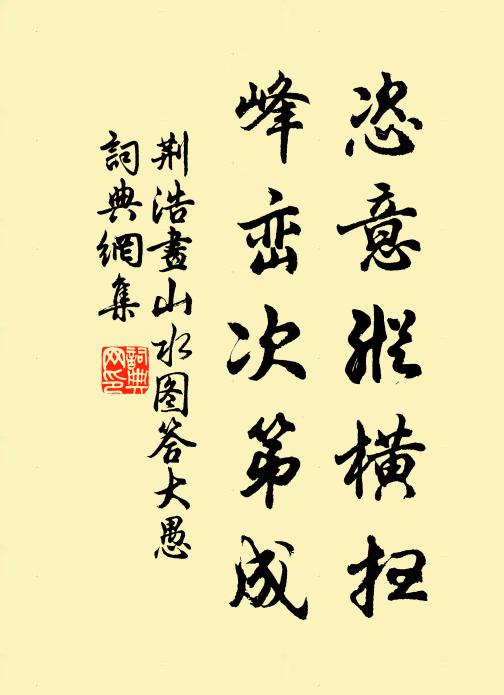 恣意縱橫扫
峰峦次第成
荆浩畫山水图答大愚
詞典網集
詞典网印